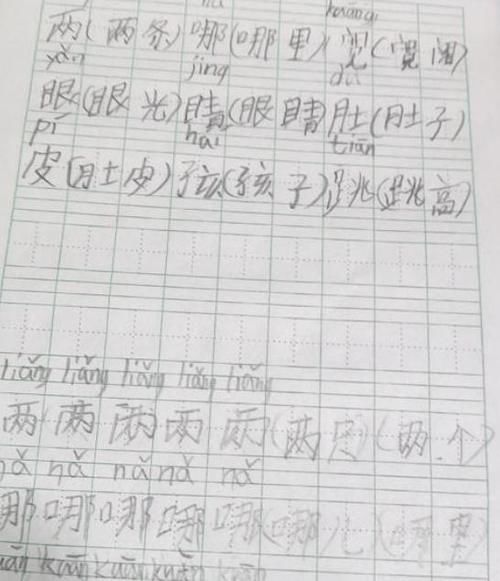 kuāng
两(两条)哪(哪里)宽(宽阔)
yǎn jing dù
眼(眼光)睛(眼睛)肚(肚子)
pí hái tiào
皮(肚皮)孩(孩子)跳(跳高)
liǎng liǎng liǎng liǎng liǎng
两两两两两(两只)(两个)
nǎ nǎ nǎ nǎ nǎ
哪哪哪哪哪(哪儿)(哪里)
kuān kuān kuān kuān